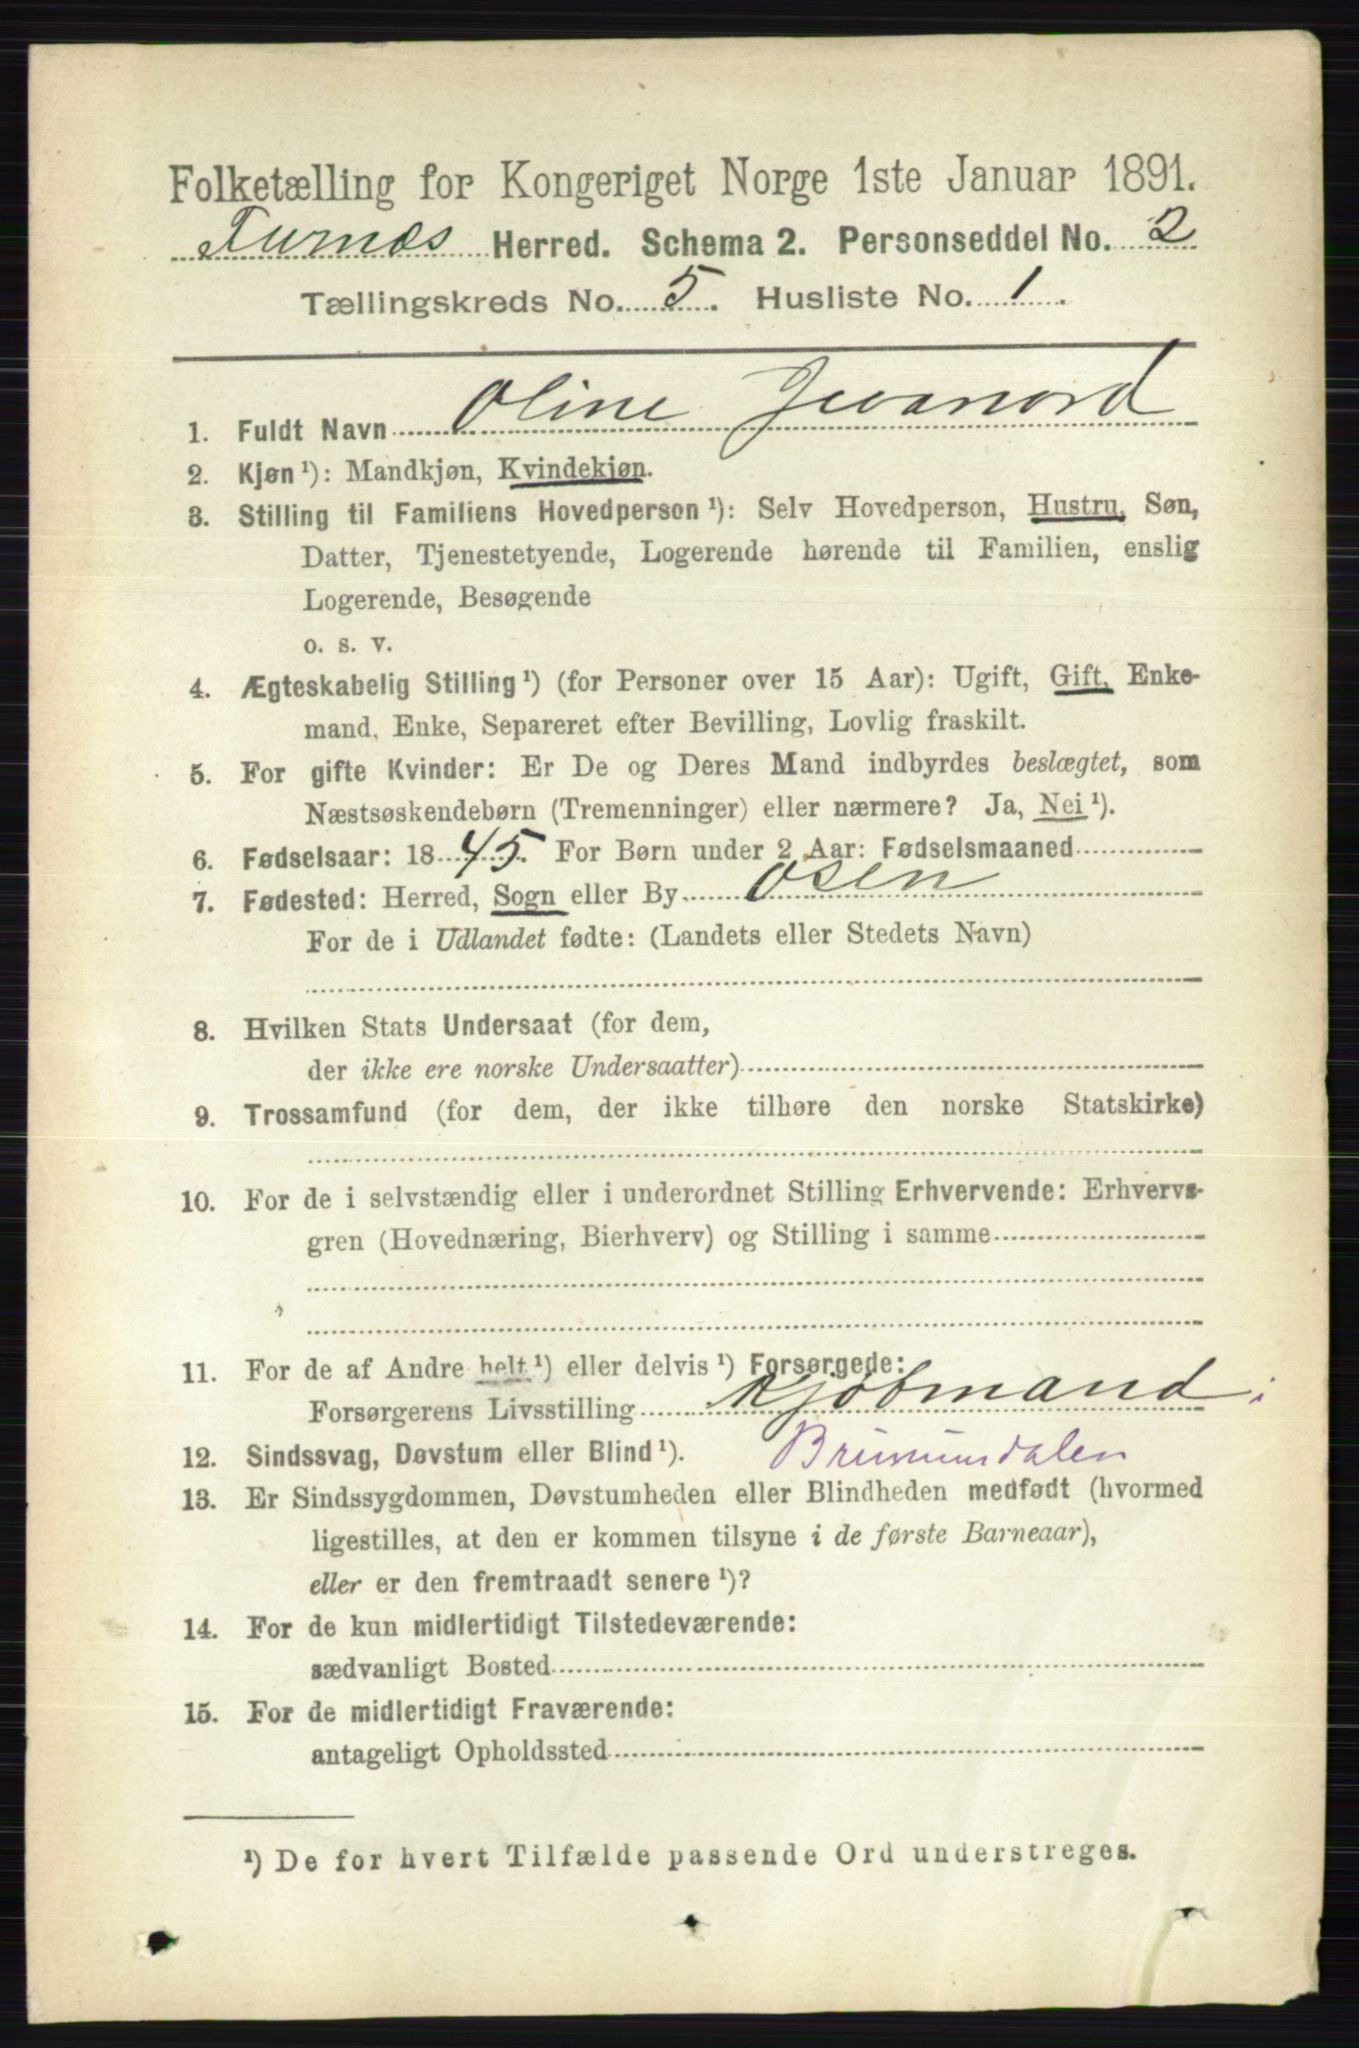 Folketælling for Kongeriget Norge 1ste Januar 1891.
Furnæs Herred. Schema 2. Personseddel No. 2
Tællingskreds No. 5. Husliste No. 1.
1. Fuldt Navn Oline
2. Kjøn ¹): Mandkjøn, Kvindekjøn.
3. Stilling til Familiens Hovedperson ¹): Selv Hovedperson, Hustru, Søn,
Datter, Tjenestetyende, Logerende hørende til Familien, enslig
Logerende, Besøgende
o. s. v.
4. Ægteskabelig Stilling ¹) (for Personer over 15 Aar): Ugift, Gift, Enke-
mand, Enke, Separeret efter Bevilling, Lovlig fraskilt.
5. For gifte Kvinder: Er De og Deres Mand indbyrdes beslægtet, som
Næstsøskendebørn (Tremenninger) eller nærmere? Ja, Nei ¹).
6. Fødselsaar: 1845. For Børn under 2 Aar: Fødselsmaaned
7. Fødested: Herred, Sogn eller By Osen
For de i Udlandet fødte: (Landets eller Stedets Navn)
8. Hvilken Stats Undersaat (for dem,
der ikke ere norske Undersaatter)
9. Trossamfund (for dem, der ikke tilhøre den norske Statskirke)
10. For de i selvstændig eller i underordnet Stilling Erhvervende: Erhvervs-
gren (Hovednæring, Bierhverv) og Stilling i samme
11. For de af Andre helt ¹) eller delvis ¹) Forsørgede:
Forsørgerens Livsstilling Kjøbmand i
12. Sindssvag, Døvstum eller Blind ¹). Brumundalen
13. Er Sindssygdommen, Døvstumheden eller Blindheden medfødt (hvormed
ligestilles, at den er kommen tilsyne i de første Barneaar),
eller er den fremtraadt senere ¹)?
14. For de kun midlertidigt Tilstedeværende:
sædvanligt Bosted
15. For de midlertidigt Fraværende:
antageligt Opholdssted
¹) De for hvert Tilfælde passende Ord understreges.